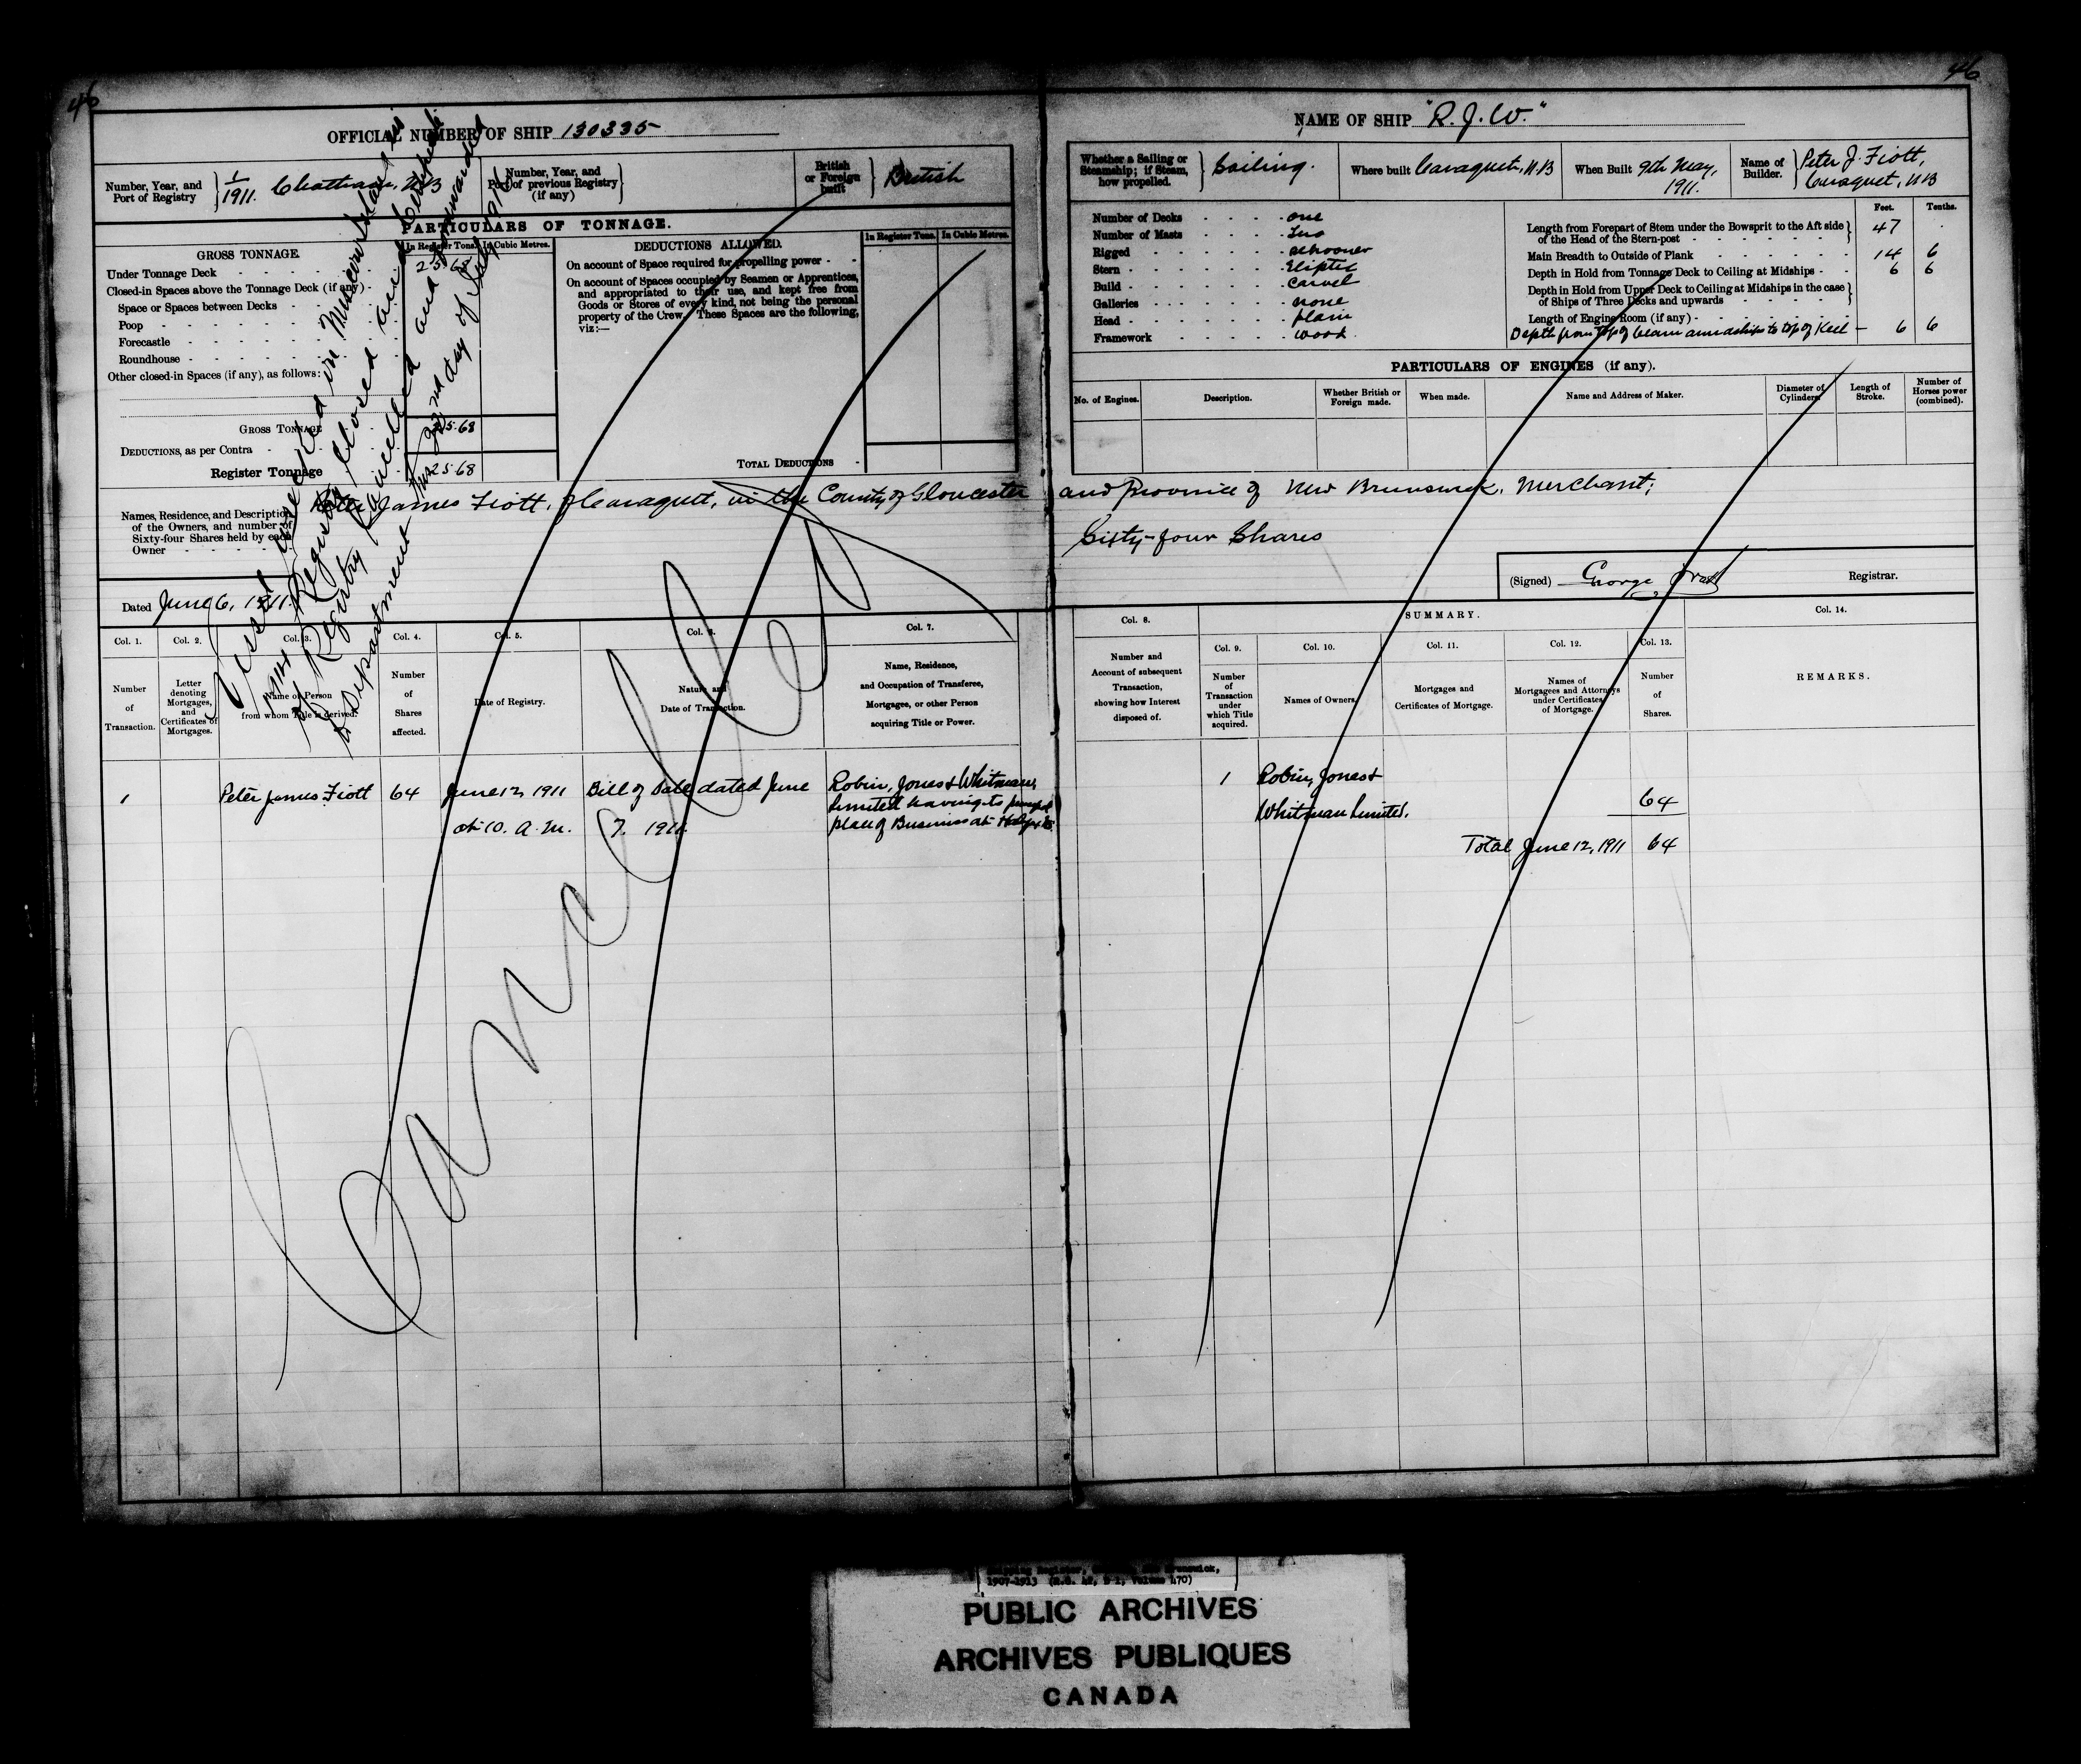 46
46
OFFICIAL NUMBER OF SHIP 130335
NAME OF SHIP "R. J. W."
Number, Year, and Port of Registry } 1/1911. Chatham, N.B
Number, Year, and Port of previous Registry (if any) }
British or Foreign built } British
Whether a Sailing or Steamship; if Steam, how propelled. } Sailing.
Where built Caraquet, N.B
When Built 9th May, 1911.
Name of Builder. } Peter J. Fiott, Caraquet, N.B
PARTICULARS OF TONNAGE.
GROSS TONNAGE.
In Register Tons. In Cubic Metres.
Under Tonnage Deck 25.68
Closed-in Spaces above the Tonnage Deck (if any)
Space or Spaces between Decks
Poop
Forecastle
Roundhouse
Other closed-in Spaces (if any), as follows:
GROSS TONNAGE 25.68
DEDUCTIONS, as per Contra
Register Tonnage 25.68
DEDUCTIONS ALLOWED.
In Register Tons. In Cubic Metres.
On account of Space required for propelling power
On account of Spaces occupied by Seamen or Apprentices,
and appropriated to their use, and kept free from
Goods or Stores of every kind, not being the personal
property of the Crew. These Spaces are the following,
viz:—
TOTAL DEDUCTIONS
Number of Decks one
Number of Masts Two
Rigged schooner
Stern Eliptic
Build Carvel
Galleries none
Head plain
Framework wood
Feet. Tenths.
Length from Forepart of Stem under the Bowsprit to the Aft side of the Head of the Stern-post } 47 .
Main Breadth to Outside of Plank 14 6
Depth in Hold from Tonnage Deck to Ceiling at Midships 6 6
Depth in Hold from Upper Deck to Ceiling at Midships in the case of Ships of Three Decks and upwards }
Length of Engine Room (if any)
Depth from top of beam amidships to top of Keel — 6 6
PARTICULARS OF ENGINES (if any).
No. of Engines. Description. Whether British or Foreign made. When made. Name and Address of Maker. Diameter of Cylinders. Length of Stroke. Number of Horses power (combined).
Names, Residence, and Description of the Owners, and number of Sixty-four Shares held by each Owner
Peter James Fiott, of Caraquet, in the County of Gloucester and Province of New Brunswick, Merchant;
Sixty-four Shares
(Signed) George Registrar.
Dated June 6, 1911.
Vessel wrecked in
1914 Registry closed and
of Registry Cancelled and forwarded
to Department this 22nd day of July 1914
Cancelled
SUMMARY.
Col. 1. Col. 2. Col. 3. Col. 4. Col. 5. Col. 6. Col. 7. Col. 8. Col. 9. Col. 10. Col. 11. Col. 12. Col. 13. Col. 14.
Number of Transaction.
Letter denoting Mortgages, and Certificates of Mortgages.
Name of Person from whom Title is derived.
Number of Shares affected.
Date of Registry.
Nature and Date of Transaction.
Name, Residence, and Occupation of Transferee, Mortgagee, or other Person acquiring Title or Power.
Number and Account of subsequent Transaction, showing how Interest disposed of.
Number of Transaction under which Title acquired.
Names of Owners.
Mortgages and Certificates of Mortgage.
Names of Mortgagees and Attorneys under Certificates of Mortgage.
Number of Shares.
REMARKS.
1 Peter James Fiott 64 June 12, 1911 Bill of Sale dated June Robin, Jones & Whitman,
at 10. A.M. 7. 1911. limited having its principal
place of Business at Halifax
1 Robin, Jones &
Whitman Limited. 64
Total June 12, 1911 64
1907-1913 (R.G. 42, Volume 470)
PUBLIC ARCHIVES
ARCHIVES PUBLIQUES
CANADA